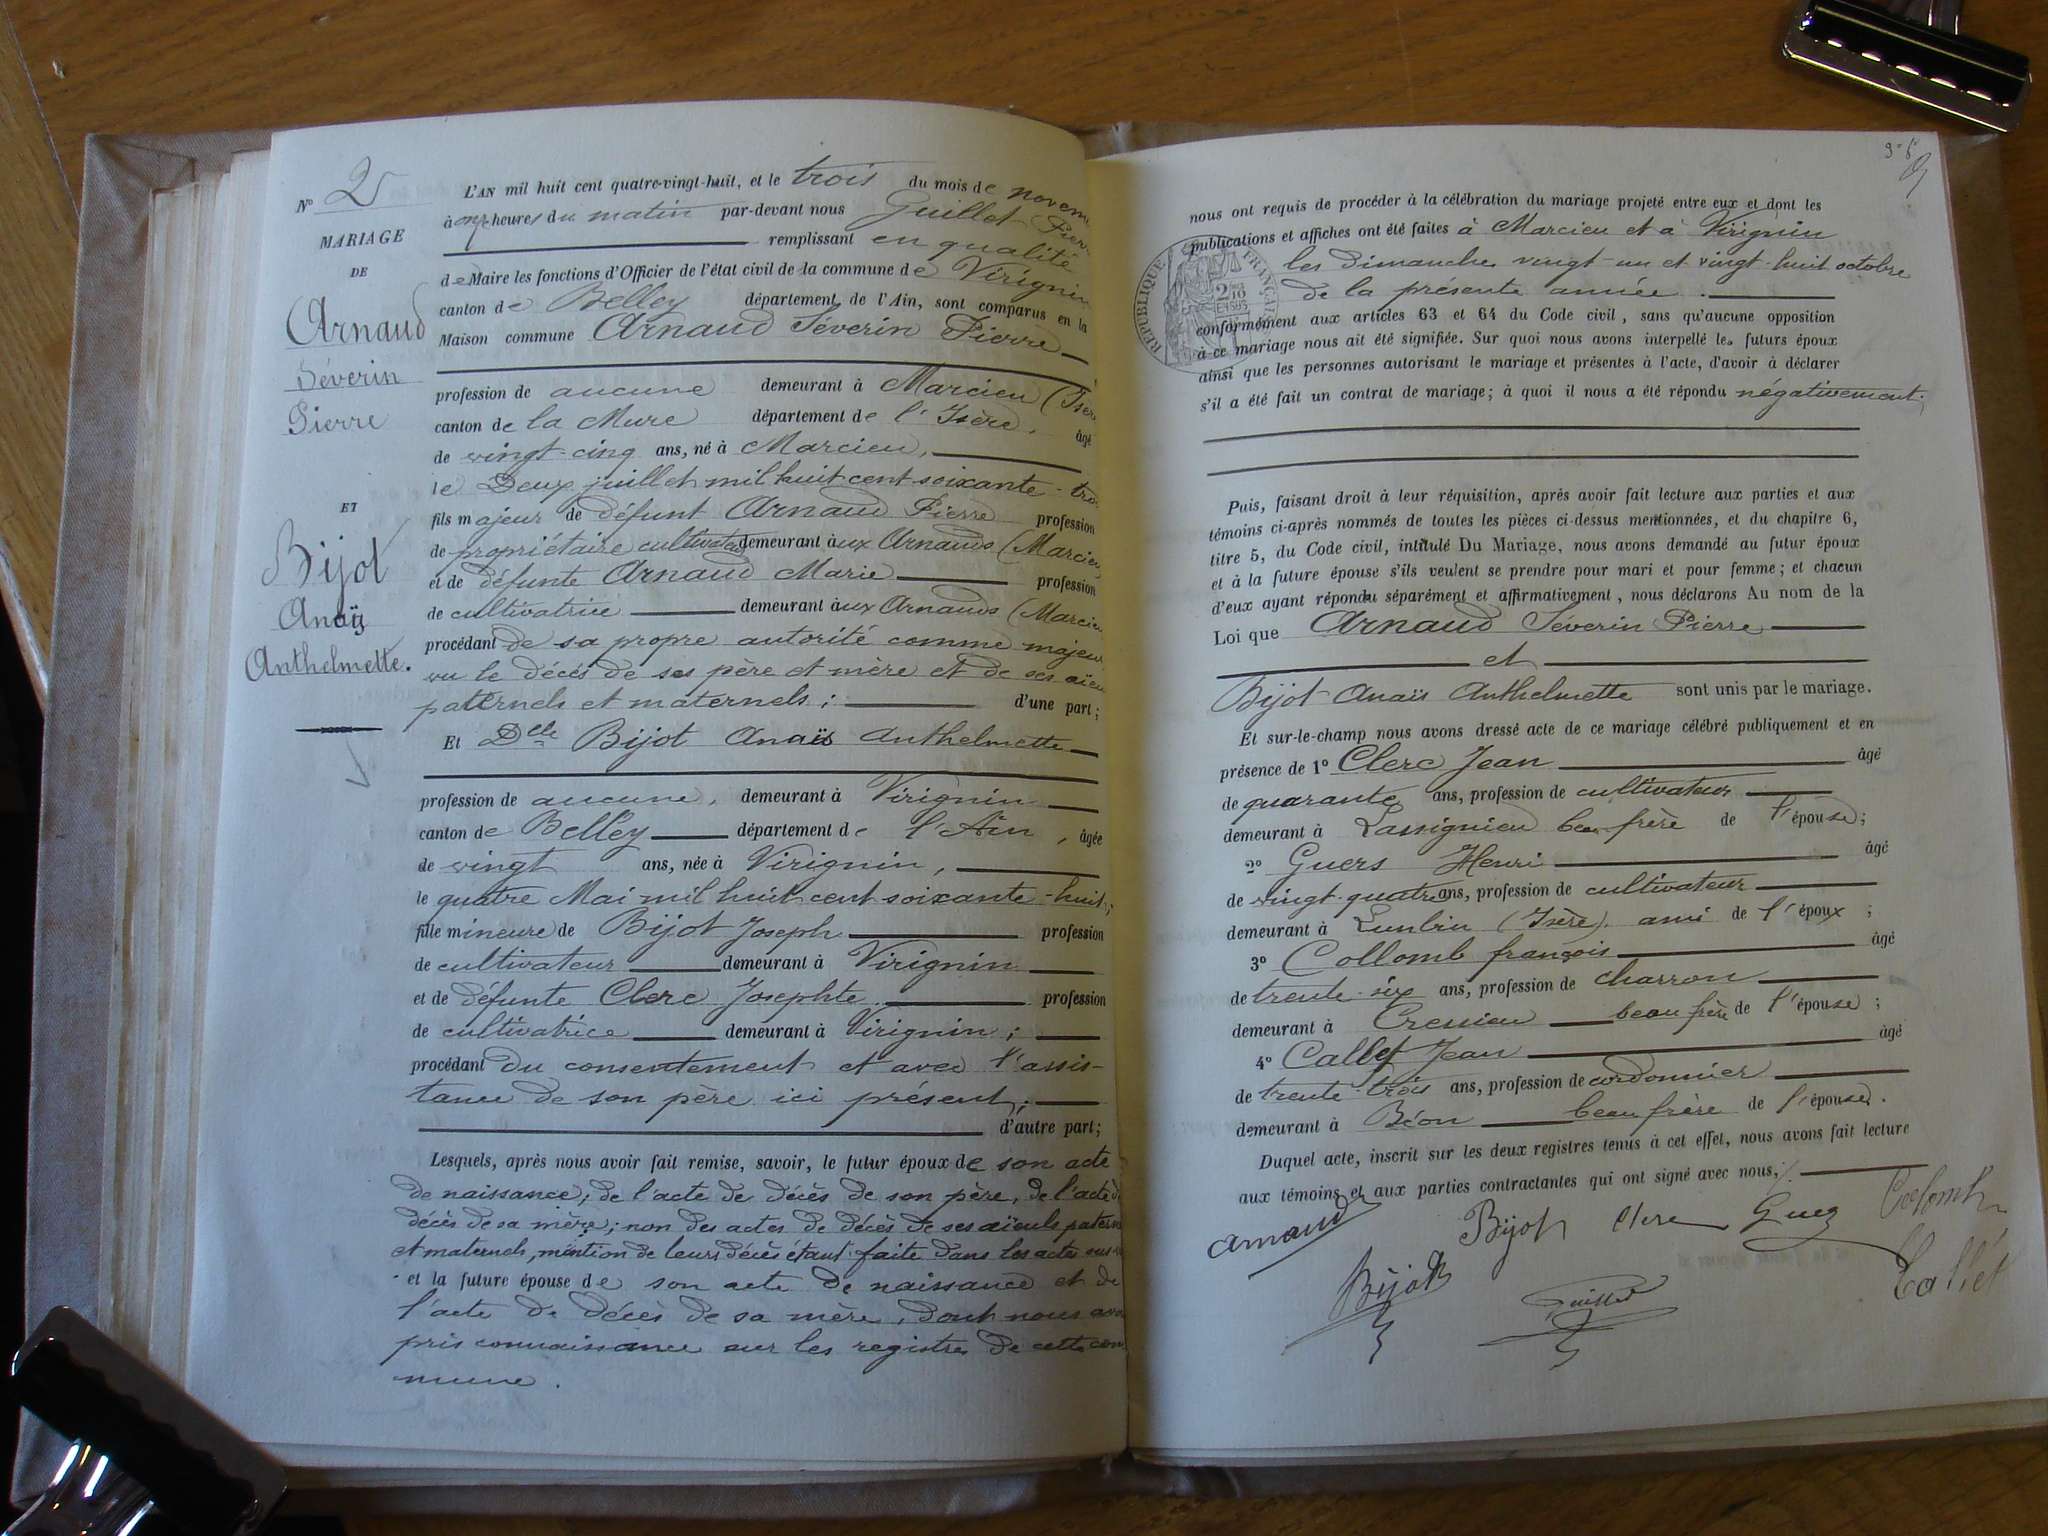 N° 2
MARIAGE
DE
Arnaud
Séverin
Pierre
ET
Bijot
Anaïs
Anthelmette.
L'AN mil huit cent quatre-vingt-huit, et le trois du mois de novem
à onze heures du matin par-devant nous Guillet Pierre
remplissant en qualité
de Maire les fonctions d'Officier de l'état civil de la commune de Virignin
canton de Belley département de l'Ain, sont comparus en la
Maison commune Arnaud Séverin Pierre
profession de aucune demeurant à Marcieu (Isère
canton de la Mure département de l'Isère, âgé
de vingt-cinq ans, né à Marcieu,
le Deux juillet mil huit cent soixante-trois
fils majeur de défunt Arnaud Pierre profession
de propriétaire cultivateur demeurant aux Arnauds (Marcieu
et de défunte Arnaud Marie profession
de cultivatrice demeurant aux Arnauds (Marcieu
procédant de sa propre autorité comme majeur
vu le décés de ses père et mère et de ses aïeu
paternels et maternels ; d'une part ;
Et Dlle Bijot Anaïs Anthelmette
profession de aucune, demeurant à Virignin
canton de Belley département de l'Ain, âgée
de vingt ans, née à Virignin,
le quatre Mai mil huit cent soixante-huit ;
fille mineure de Bijot Joseph profession
de cultivateur demeurant à Virignin
et de défunte Clerc Josephte profession
de cultivatrice demeurant à Virignin ;
procédant du consentement et avec l'assis-
tance de son père ici présent ;
d'autre part ;
Lesquels, après nous avoir fait remise, savoir, le futur époux de son acte
de naissance ; de l'acte de décès de son père, de l'acte de
décès de sa mère ; non des actes de décès de ses aïeuls patern
et maternels, mention de leurs décès étant faite dans les actes sus
et la future épouse de son acte de naissance et de
l'acte de décès de sa mère, dont nous avo
pris connaissance sur les registres de cette com
mune.
nous ont requis de procéder à la célébration du mariage projeté entre eux et dont les
publications et affiches ont été faites à Marcieu et à Virignin
les dimanches vingt-un et vingt-huit octobre
de la présente année.
conformément aux articles 63 et 64 du Code civil, sans qu'aucune opposition
à ce mariage nous ait été signifiée. Sur quoi nous avons interpellé les futurs époux
ainsi que les personnes autorisant le mariage et présentes à l'acte, d'avoir à déclarer
s'il a été fait un contrat de mariage ; à quoi il nous a été répondu négativement ;
RÉPUBLIQUE FRANÇAISE
Puis, faisant droit à leur réquisition, après avoir fait lecture aux parties et aux
témoins ci-après nommés de toutes les pièces ci-dessus mentionnées, et du chapitre 6,
titre 5, du Code civil, intitulé Du Mariage, nous avons demandé au futur époux
et à la future épouse s'ils veulent se prendre pour mari et pour femme ; et chacun
d'eux ayant répondu séparément et affirmativement, nous déclarons Au nom de la
Loi que Arnaud Séverin Pierre
et
Bijot Anaïs Anthelmette sont unis par le mariage.
Et sur-le-champ nous avons dressé acte de ce mariage célébré publiquement et en
présence de 1° Clerc Jean âgé
de quarante ans, profession de cultivateur
demeurant à Lassignieu beau frère de l'épouse ;
2° Guers Henri âgé
de vingt-quatre ans, profession de cultivateur
demeurant à Lumbin (Isère) ami de l'époux ;
3° Collomb françois âgé
de trente-six ans, profession de charron
demeurant à Cressieu beau frère de l'épouse ;
4° Callet Jean âgé
de trente-trois ans, profession de cordonnier
demeurant à Béon beau frère de l'épouse.
Duquel acte, inscrit sur les deux registres tenus à cet effet, nous avons fait lecture
aux témoins et aux parties contractantes qui ont signé avec nous,
Arnaud Bijot Clerc Guers Colomb
Bijot Guillet Callet